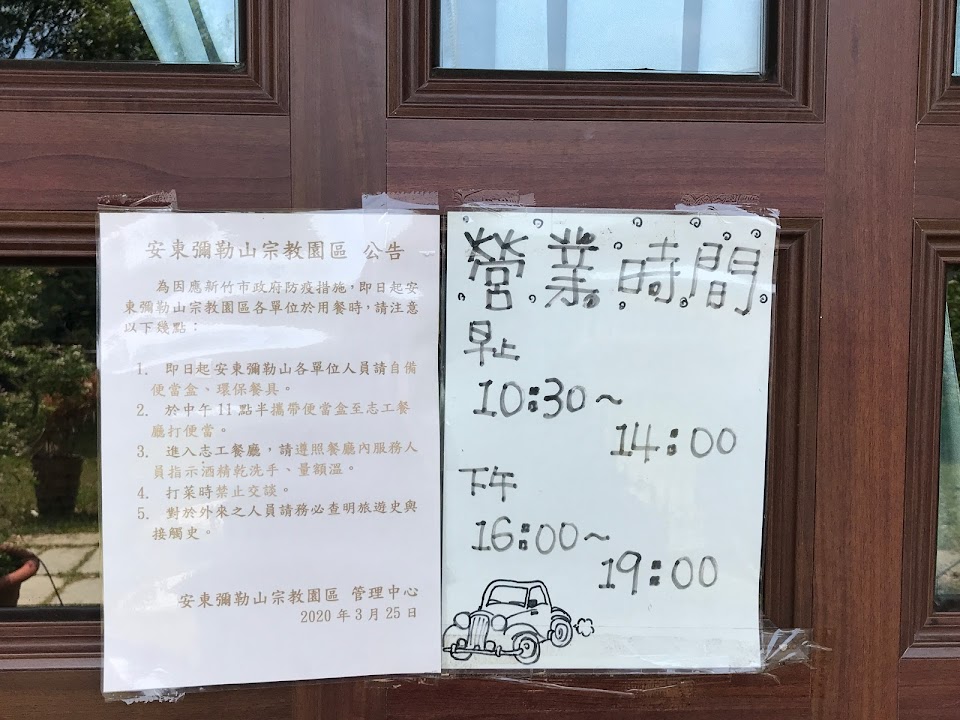 安東彌勒山宗教園區 公告
為因應新竹市政府防疫措施,即日起安
東彌勒山宗教園區各單位於用餐時,請注意
以下幾點：
1. 即日起安東彌勒山各單位人員請自備
便當盒、環保餐具。
2. 於中午11點半攜帶便當盒至志工餐
廳打便當。
3. 進入志工餐廳，請遵照餐廳內服務人
員指示酒精乾洗手、量額溫。
4. 打菜時禁止交談。
5. 對於外來之人員請務必查明旅遊史與
接觸史。
安東彌勒山宗教園區 管理中心
2020年3月25日
營業時間
早上
10:30~
14:00
下午
16:00~
19:00